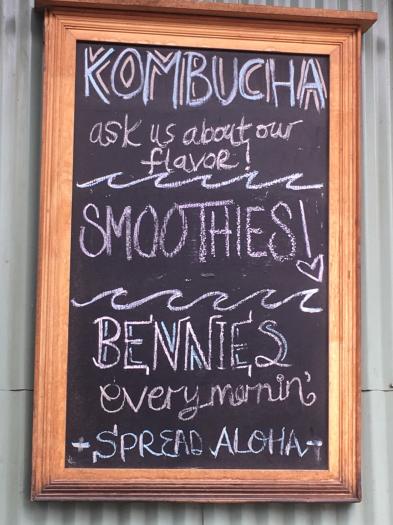 KOMBUCHA
ask us about our
flavor!
SMOOTHIES!
BENNIES
every mornin'
-SPREAD ALOHA-